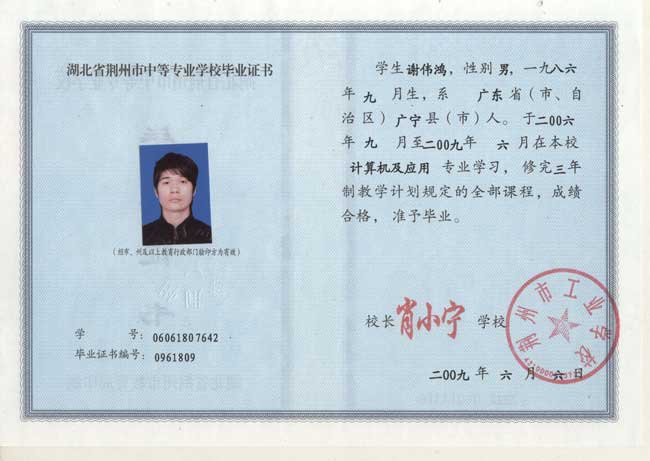 湖北省荆州市中等专业学校毕业证书
(经市、州及以上教育行政部门验印方为有效)
学 号：06061807642
毕业证书编号：0961809
学生 谢伟鸿，性别 男，一九八六
年 九 月生，系 广东 省（市、自
治区）广宁 县（市）人。于二00六
年 九 月至二00九年 六 月在本校
计算机及应用 专业学习，修完三年
制教学计划规定的全部课程，成绩
合格，准予毕业。
校长 肖小宁 学校
荆州市工业学校
二00九 年 六 月 六 日